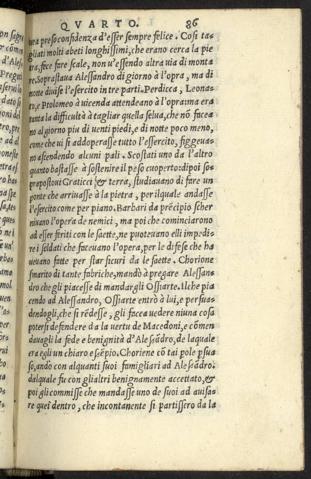 QVARTO. 86
tura preso confidenza d'esser sempre felice. Cosi ta=
gliati molti abeti longhissimi, che erano cerca la pie
tra, fece fare scale, non u'essendo altra uia di monta
re. Soprastaua Alessandro di giorno à l'opra, ma di
notte diuise l'esercito in tre parti. Perdicca, Leona=
to, e Ptolomeo à uicenda attendeano à l'opra: ma era
tanta la difficultà à tagliar quella selua, che nõ facea
no al giorno piu di uenti piedi, e di notte poco meno,
come che ui si addoperasse tutto l'essercito, figgeua=
no ascendendo alcuni pali. Scostati uno da l'altro
quanto bastasse à sostenire il peso cuoperto: dipoi so=
prapostoui Graticci & terra, studiauano di fare un
ponte che arriuasse à la pietra, per ilquale andasse
l'esercito come per piano. Barbari da prícipio scher
niuano l'opera de nemici, ma poi che cominciarono
ad esser feriti con le saette, ne puoteuano elli impedi=
re i soldati che faceuano l'opera, per le difese che ha
ueuano fatte per star sicuri da le saette. Choriene
smarito di tante fabriche, mandò à pregare Alessan=
dro che gli piacesse di mandargli Ossiarte. Ilche pia
cendo ad Alessandro, Ossiarte entrò à lui, e persua=
dendogli, che si rēdesse, gli faceua uedere niuna cosa
potersi defendere da la uertu de Macedoni, e cõmen
dauagli la fede e benignità d'Alesādro, de laquale
era egli un chiaro esēpio. Choriene cõ tai pole psua
so, andò con alquanti suoi famigliari ad Alesādro:
dalquale fu con gli altri benignamente accettato, &
poi gli commisse che mandasse uno de suoi ad auisa=
re quei dentro, che incontanente si partissero da la